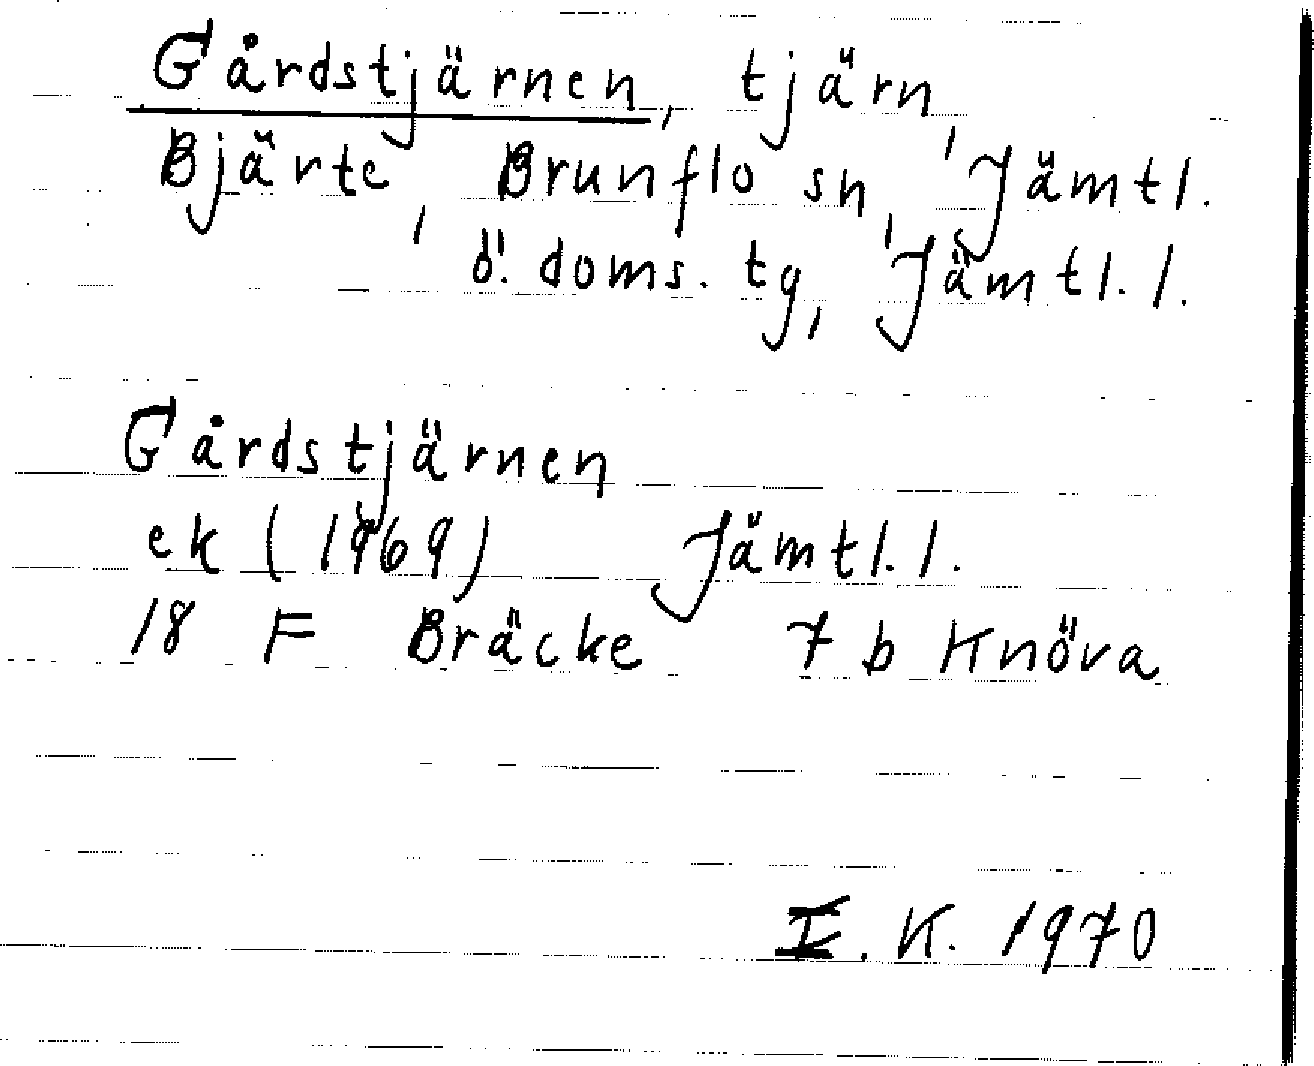 Gårdstjärnen, tjärn,
Bjärte, Brunflo sn, Jämtl.
ö. doms. tg, Jämtl. l.
Gårdstjärnen
ek (1969) Jämtl. l.
18 F Bräcke 7 b Knöva
K. 1970